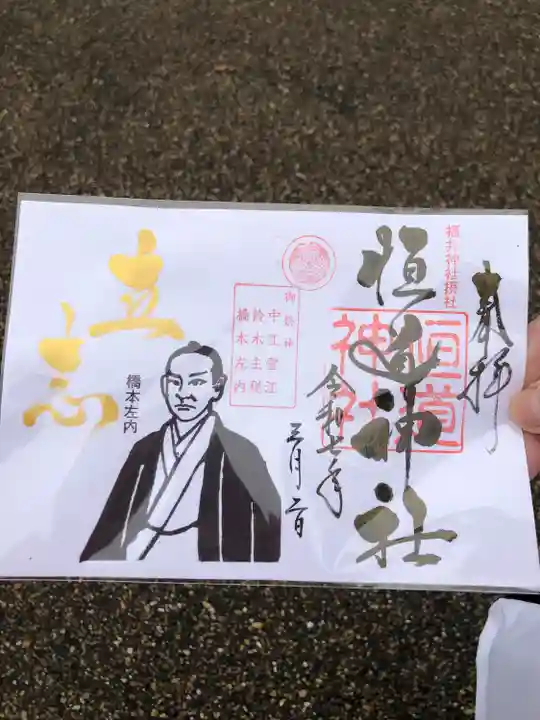 奉拝
福井神社摂社
恒道神社
恒道
神社
令和七年
三月二日
御祭神
中江雪江
鈴木主税
橋本左内
立志
橋本左内